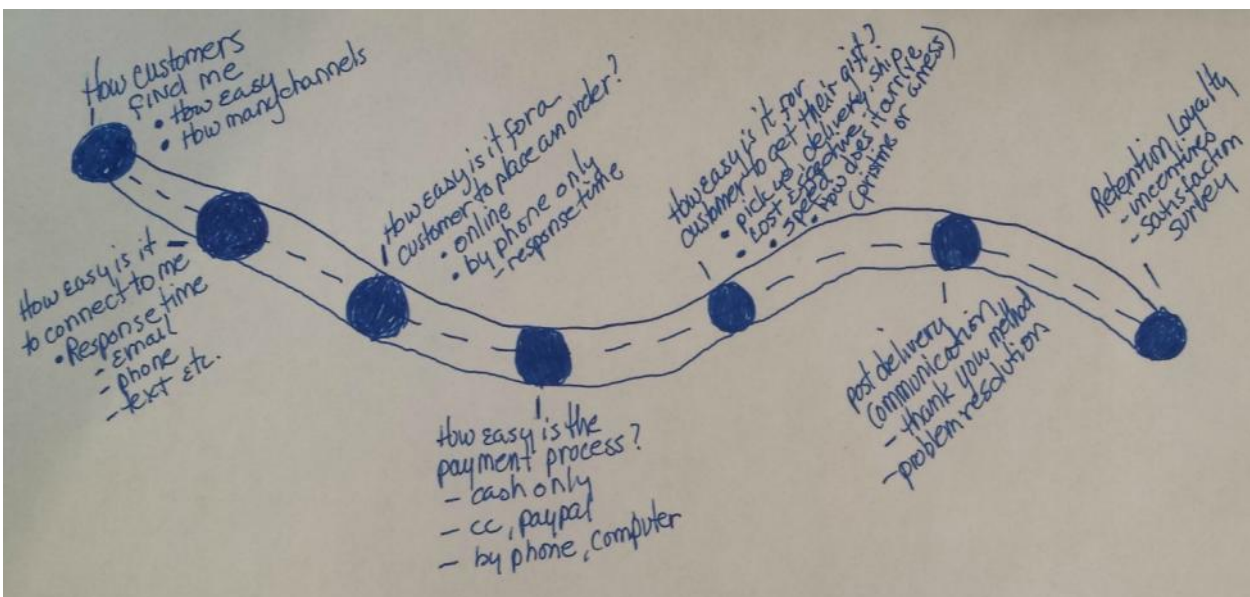 How customers
find me
• How easy
• How many channels
How easy is it
to connect to me
• Response time
- email
- phone
- text etc.
How easy is it for a
customer to place an order?
• online
• by phone only
- response time
How easy is the
payment process?
- cash only
- cc, paypal
- by phone, computer
How easy is it for
customer to get their gift?
• pick up, delivery, ship
• cost effective
• speed
• how does it arrive
(pristine or a mess)
post delivery
communication
- thank you method
- problem resolution
Retention, Loyalty
- incentives
- satisfaction
survey